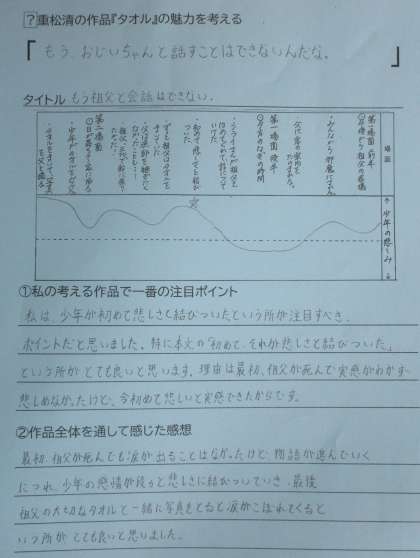 ?重松清の作品『タオル』の魅力を考える
「もう、おじいちゃんと話すことはできないんだな。」
タイトル もう祖父と会話はできない。
場面
←少年の悲しみ→
第一場面 前半
・みんなから邪魔にさ
第一場面 後半
・シライさんが祖父と
第二場面
・少年がタオルを
①私の考える作品で一番の注目ポイント
私は、少年が初めて悲しさと結びついたという所が注目すべき
ポイントだと思いました。特に本文の「初めて、それが悲しさと結びついた」
という所がとても良いと思います。理由は最初、祖父が死んで実感がわかず
悲しめなかったけど、今初めて悲しいと実感できたからです。
②作品全体を通して感じた感想
最初、祖父が死んでも涙が出ることはなかったけど、物語が進んでいく
につれ、少年の感情が段々と悲しさに結びついていき、最後
祖父の大切なタオルと一緒に写真をとると涙がこぼれてくると
いう所がとても良いと思いました。